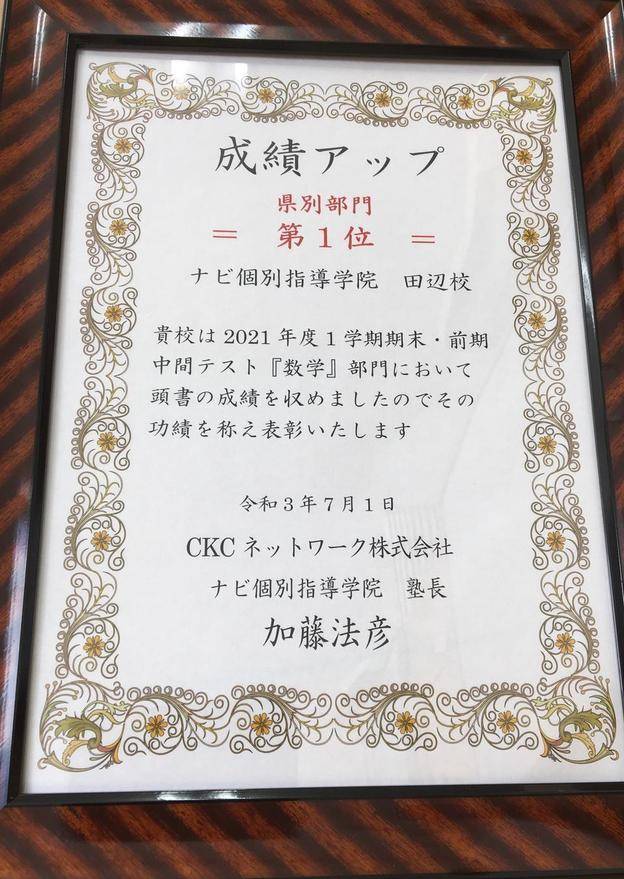 成績アップ
県別部門
＝ 第1位 ＝
ナビ個別指導学院 田辺校
貴校は2021年度1学期期末・前期
中間テスト『数学』部門において
頭書の成績を収めましたのでその
功績を称え表彰いたします
令和3年7月1日
CKCネットワーク株式会社
ナビ個別指導学院 塾長
加藤法彦